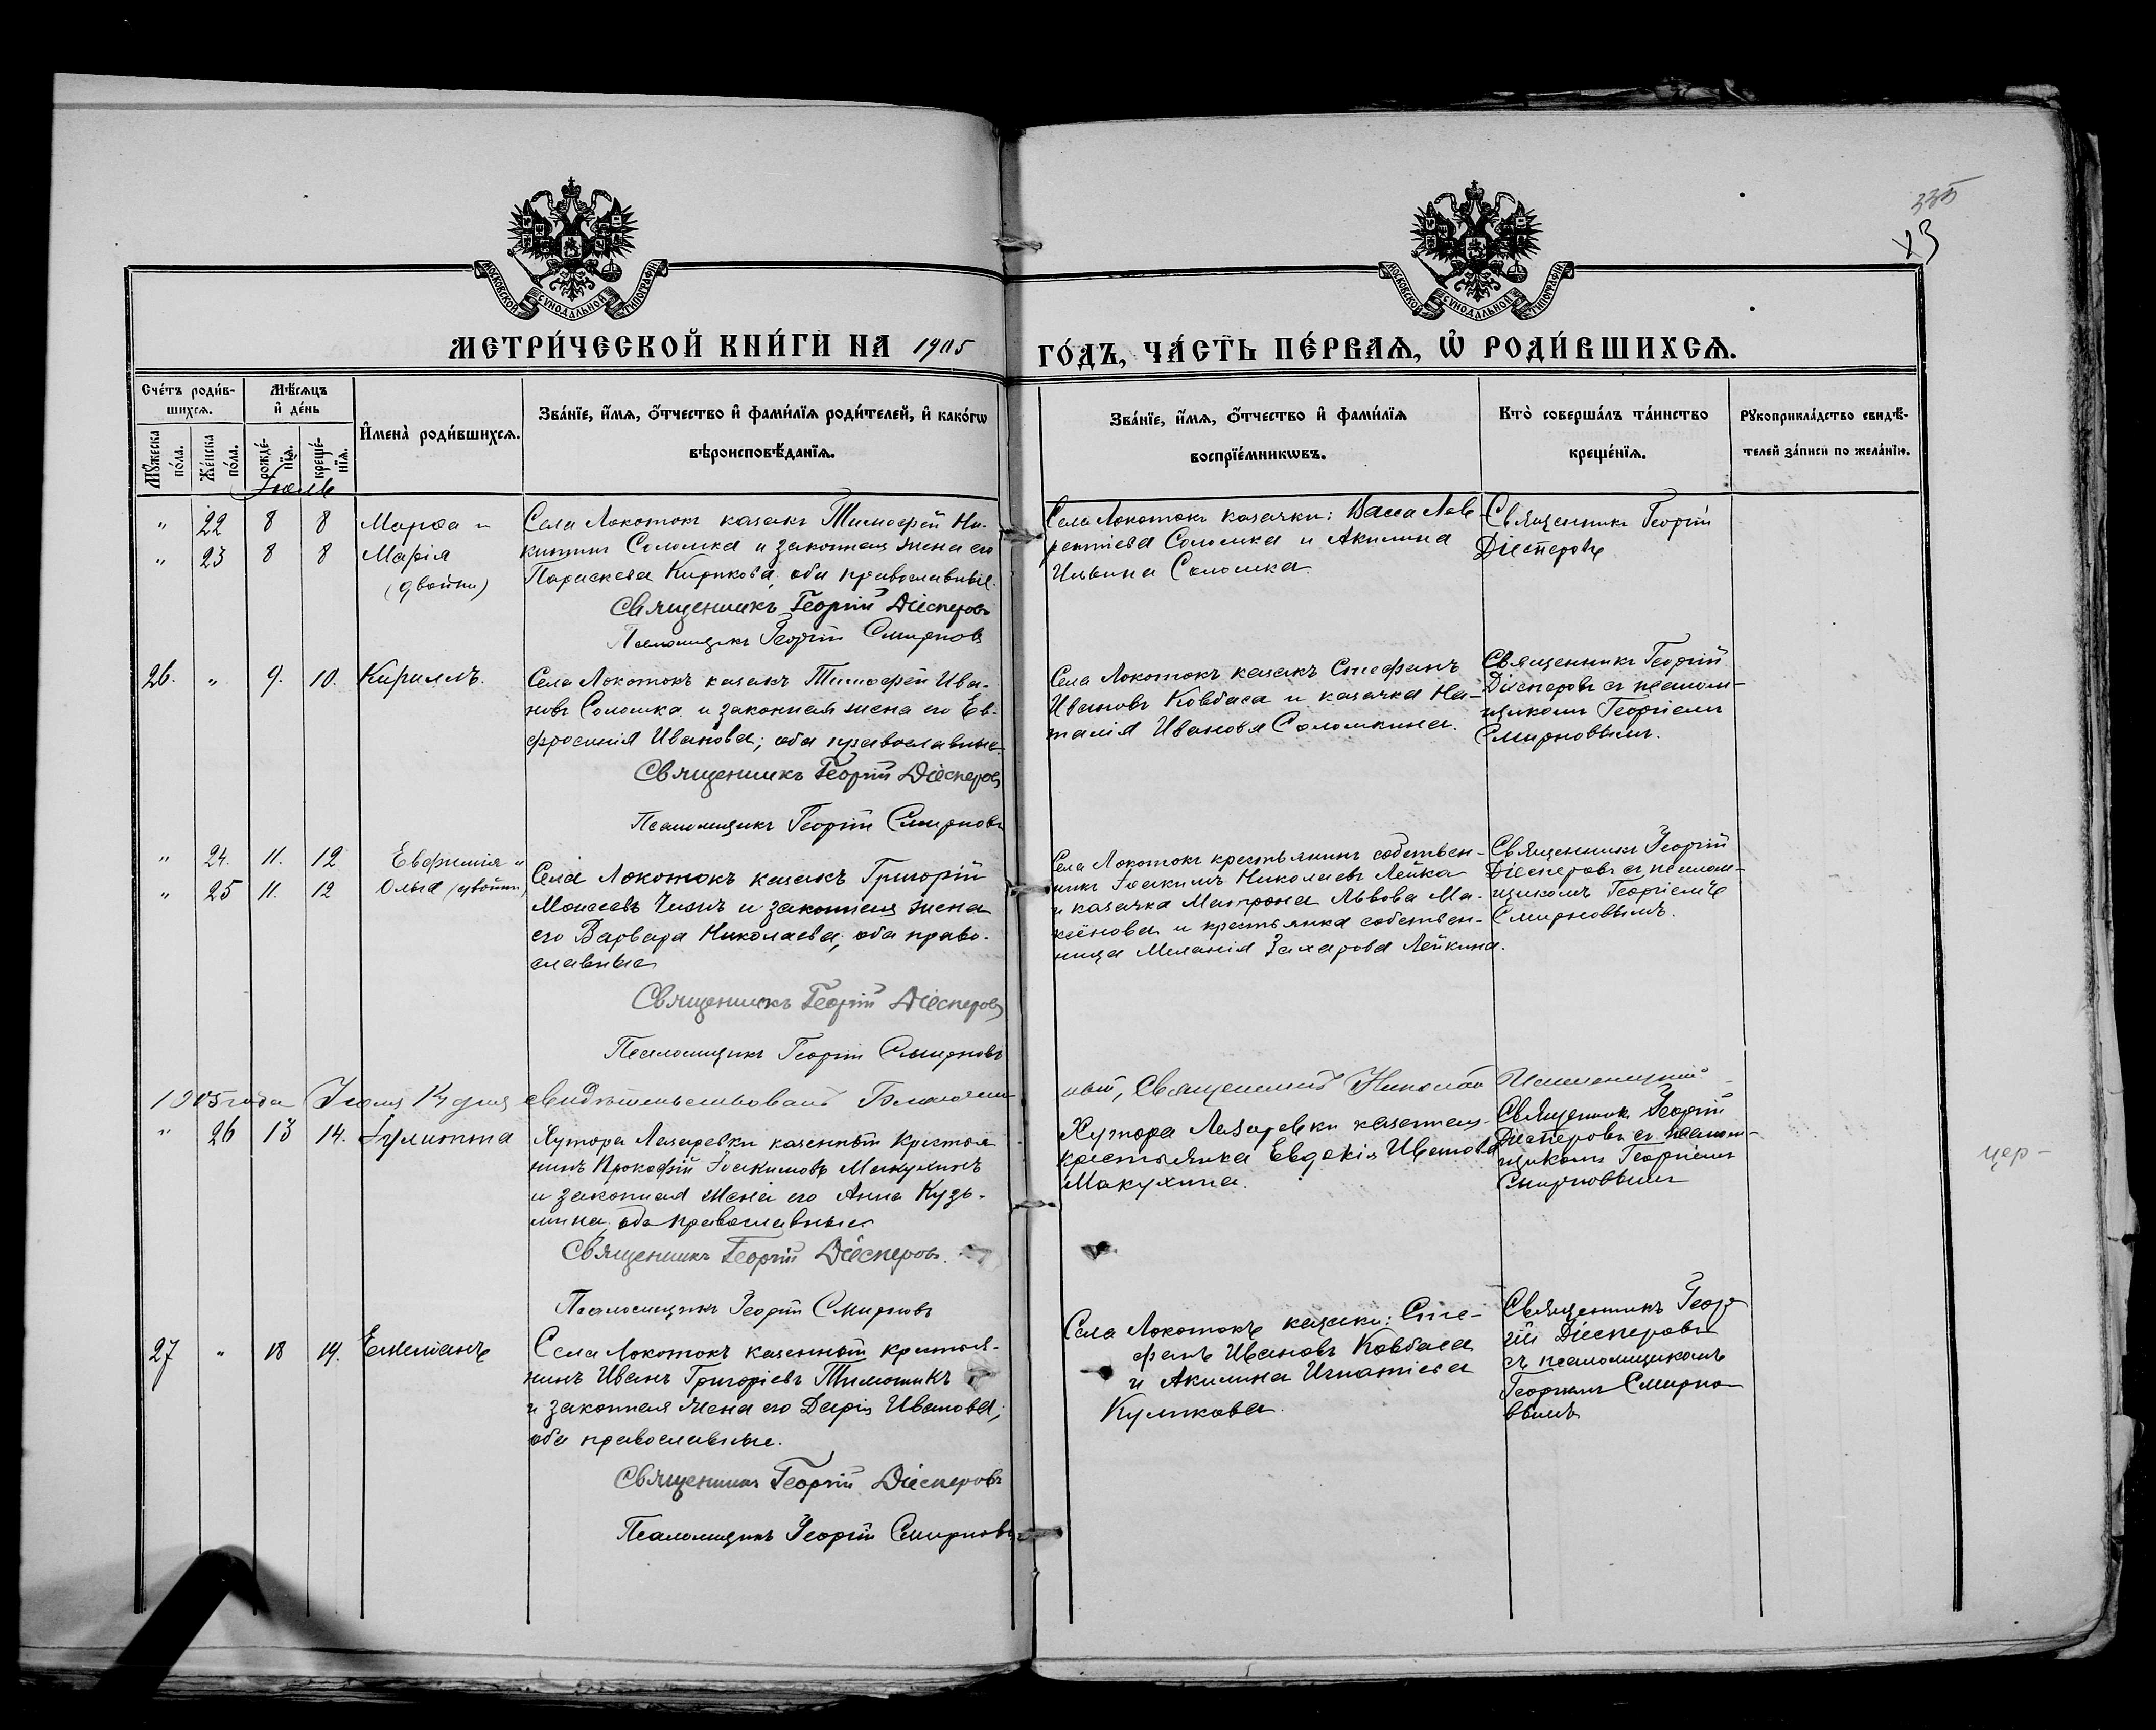 335
23
МОСКОВСКОЙ СѴНОДАЛЬНОЙ ТИПОГРАФІИ
МОСКОВСКОЙ СѴНОДАЛЬНОЙ ТИПОГРАФІИ
МЕТРИ́ЧЕСКОЙ КНИ́ГИ НА 1905
ГО́ДЪ, ЧА́СТЬ ПЕ́РВАѦ, Ѡ РОДИ́ВШИХСѦ.
Сче́тъ роди́в-
шихсѧ.
Мꙋ́жеска по́ла.
Же́нска по́ла.
Мѣ́сѧцъ
и҆ де́нь
рожде́-
нїѧ.
креще́-
нїѧ.
И҆мена̀ роди́вшихсѧ.
Зва́нїе, и҆́мѧ, ѻ҆́тчество и҆ фами́лїѧ роди́телей, и҆ како́гѡ
вѣроисповѣ́данїѧ.
Зва́нїе, и҆́мѧ, ѻ҆́тчество и҆ фами́лїѧ
воспрїе́мникѡвъ.
Кто̀ соверша́лъ та́инство
креще́нїѧ.
Рꙋкоприкла́дство свидѣ́-
телей за́писи по жела́нїю.
Іюль
" 22 8 8 Марѳа и
" 23 8 8 Марія
(двойни)
Села Локотокъ казакъ Тимофей Ни-
китинъ Соломка и законная жена его
Параскева Кирикова, оба православные.
Священникъ Георгій Діесперовъ
Псаломщикъ Георгій Смирновъ
Села Локотокъ казачки: Васса Лав-
рентіева Соломка и Акилина
Ильина Соломка.
Священникъ Георгій
Діесперовъ
26. " 9. 10. Кириллъ.
Села Локотокъ казакъ Тимофей Ива-
новъ Соломка и законная жена его Ев-
фросинія Иванова; оба православные.
Священникъ Георгій Діесперовъ
Псаломщикъ Георгій Смирновъ
Села Локотокъ казакъ Стефанъ
Ивановъ Ковбаса и казачка На-
талія Иванова Соломкина.
Священникъ Георгій
Діесперовъ съ псалом-
щикомъ Георгіемъ
Смирновымъ.
" 24. 11. 12 Евфимія и
" 25 11. 12 Ольга (двойни)
Села Локотокъ казакъ Григорій
Моисеевъ и законная жена
его Варвара Николаева, оба право-
славные
Священникъ Георгій Діесперовъ
Псаломщикъ Георгій Смирновъ
Села Локотокъ крестьянинъ собствен-
никъ Іоакимъ Николаевъ Лейка
и казачка Матрона Львова Ма-
и крестьянка собствен-
ница Меланія Захарова Лейкина.
Священникъ Георгій
Діесперовъ съ псалом-
щикомъ Георгіемъ
Смирновымъ.
1905 года Іюля 14 дня свидѣтельствовалъ Благочин-
ный, Священникъ Николай
" 26 13 14. Іулитта
Хутора Лазаревки казенный крестья-
нинъ Прокофій Іоакимовъ Макухинъ
и законная жена его Анна Кузь-
мина, оба православные
Священникъ Георгій Діесперовъ.
Псаломщикъ Георгій Смирновъ
Хутора Лазаревки казенная
крестьянка Евдокія Иванова
Макухина.
Священникъ Георгій
Діесперовъ съ псалом-
щикомъ Георгіемъ
Смирновымъ
цер-
27 " 18 19. Емеліанъ
Села Локотокъ казенный крестья-
нинъ Иванъ Григоріевъ Тимошикъ
и законная жена его Дарія Иванова;
оба православные.
Священникъ Георгій Діесперовъ
Псаломщикъ Георгій Смирновъ
Села Локотокъ казаки: Сте-
фанъ Ивановъ Ковбаса
и Акилина Игнатіева
Куликова.
Священникъ Геор-
гій Діесперовъ
съ псаломщикомъ
Георгіемъ Смирно-
вымъ